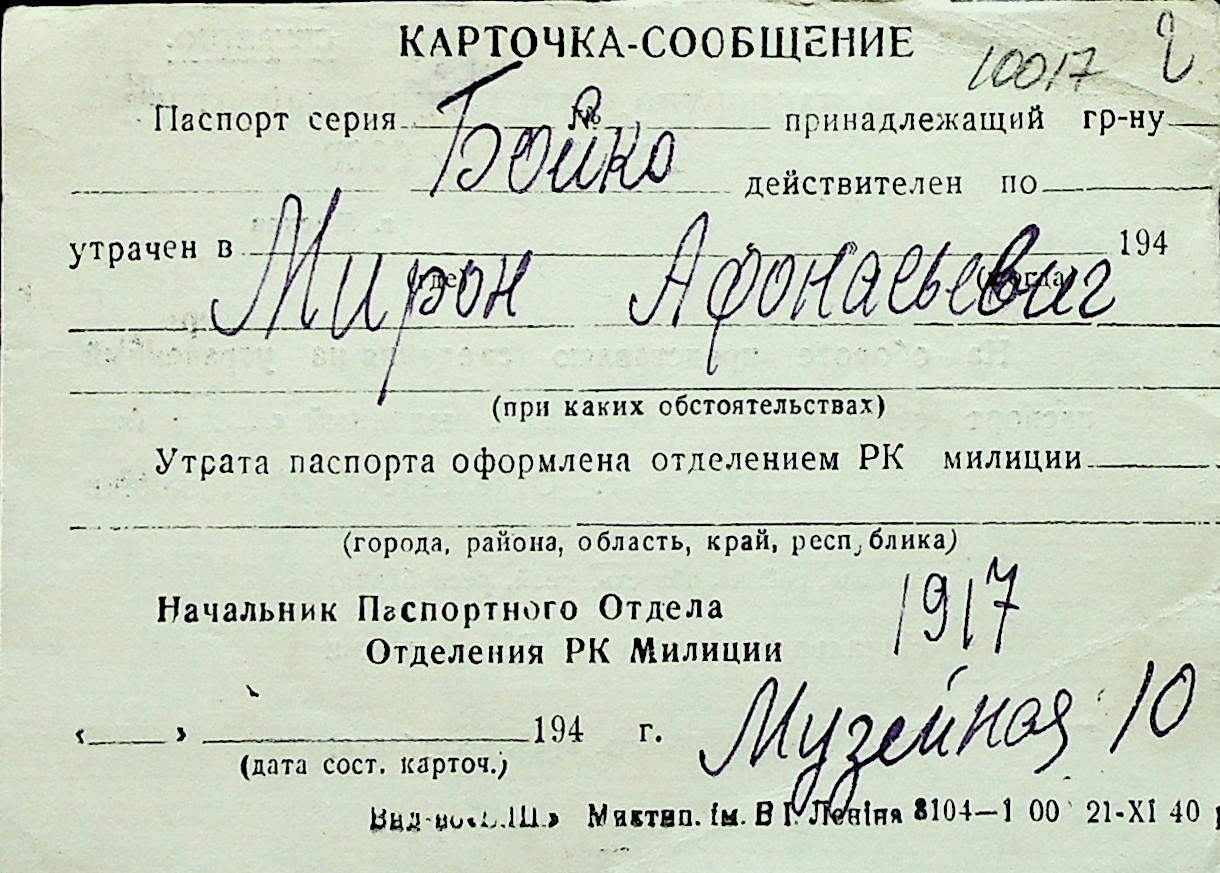 КАРТОЧКА-СООБЩЕНИЕ
10017 2
Паспорт серия № принадлежащий гр-ну
Бойко
действителен по
утрачен в 194
(где) (когда)
Мирон Афонасьевич
(при каких обстоятельствах)
Утрата паспорта оформлена отделением РК милиции
(города, района, область, край, республика)
1917
Начальник Паспортного Отдела
Отделения РК Милиции
Музейная 10
« » 194 г.
(дата сост. карточ.)
Вид-во Миктип. ім. В І. Леніна 8104—1 00 21-XI 40